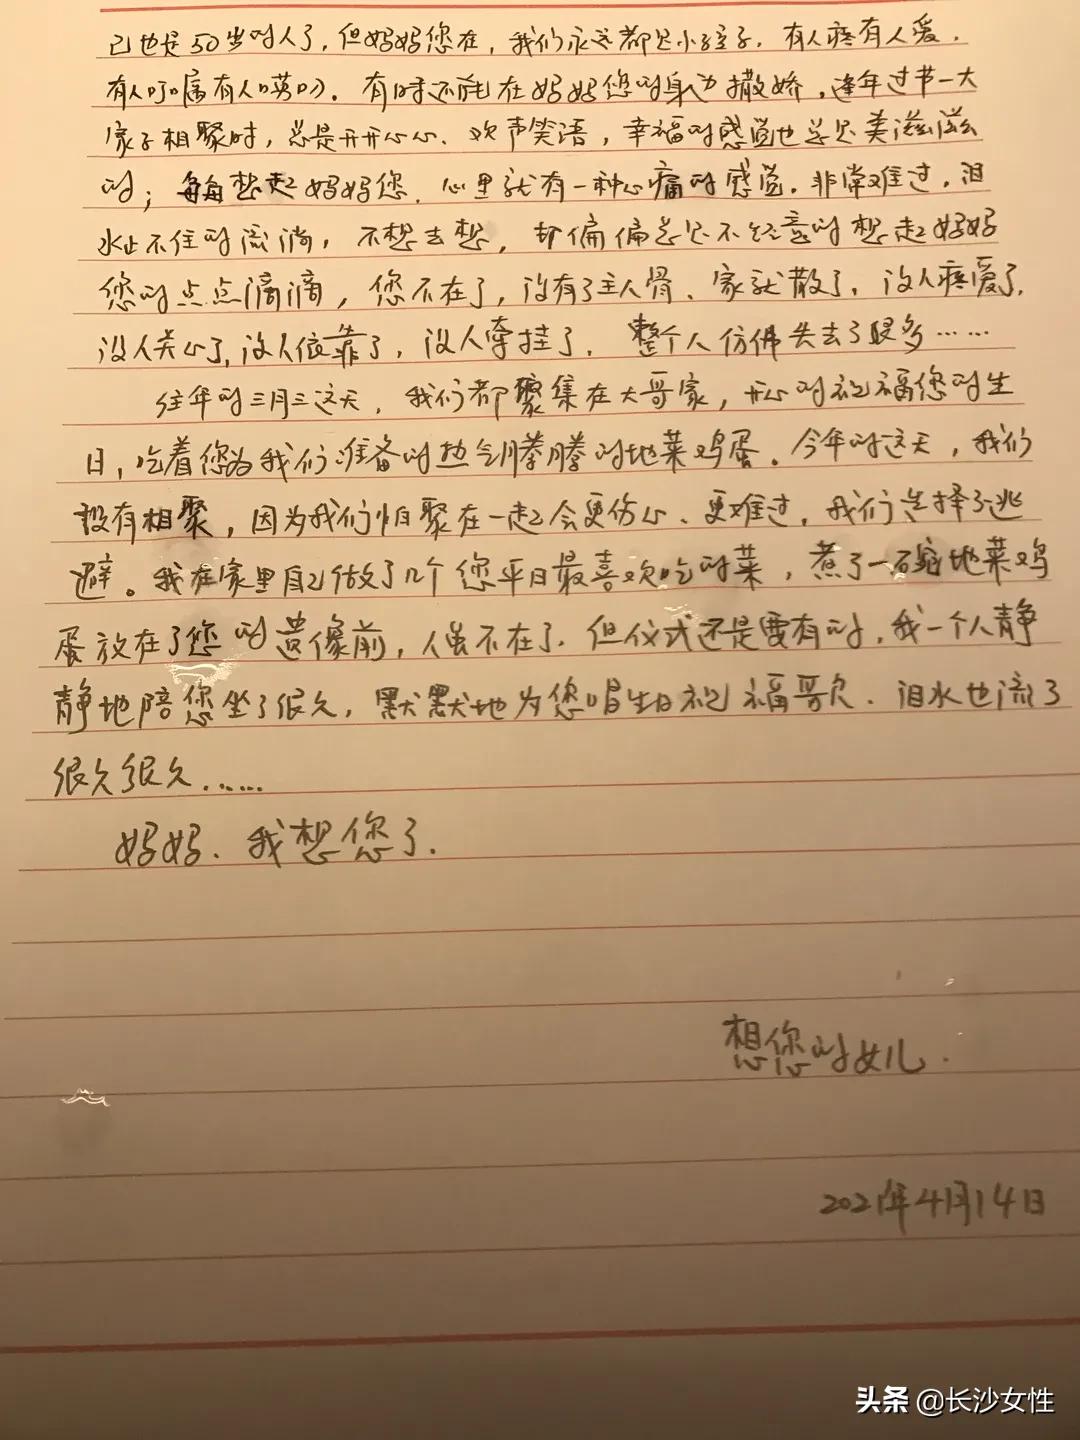 己也是50岁的人了，但妈妈您在，我们永远都是小孩子．有人疼有人爱．
有人叮嘱有人唠叨．有时还能在妈妈您的身边撒娇，逢年过节一大
家子相聚时，总是开开心心、欢声笑语，幸福的感觉也总是美滋滋
的；每每想起妈妈您．心里就有一种心痛的感觉．非常难过，泪
水止不住的流淌，不想去想，却偏偏总是不经意的想起妈妈
您的点点滴滴，您不在了，没有了主人骨、家就散了．没人疼爱了，
没人关心了，没人依靠了，没人牵挂了．整个人仿佛失去了很多……
往年的三月三这天，我们都聚集在大哥家，开心的祝福您的生
日，吃着您为我们准备的热气腾腾的地菜鸡蛋。今年的这天，我们
没有相聚，因为我们怕聚在一起会更伤心、更难过，我们选择了逃
避。我在家里自己做了几个您平日最喜欢吃的菜，煮了一碗地菜鸡
蛋放在了您的遗像前，人虽不在了．但仪式还是要有的，我一个人静
静地陪您坐了很久，默默地为您唱生日祝福歌．泪水也流了
很久很久……
妈妈．我想您了．
想您的女儿．
2021年4月14日
头条 @长沙女性